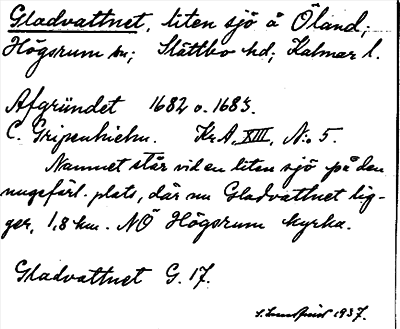 Gladvattnet, liten sjö å Öland;
Högsrum sn; Slättbo hd; Kalmar l.
Afgründet 1682 o. 1683.
C. Gripenhielm. Kr.A. XIII, N:o 5.
Namnet står vid en liten sjö på den
ungefärl. plats, där nu Gladvattnet lig-
ger, 1,8 km. NÖ Högsrum kyrka.
Gladvattnet G. 17.
S. Lundqvist 1937.